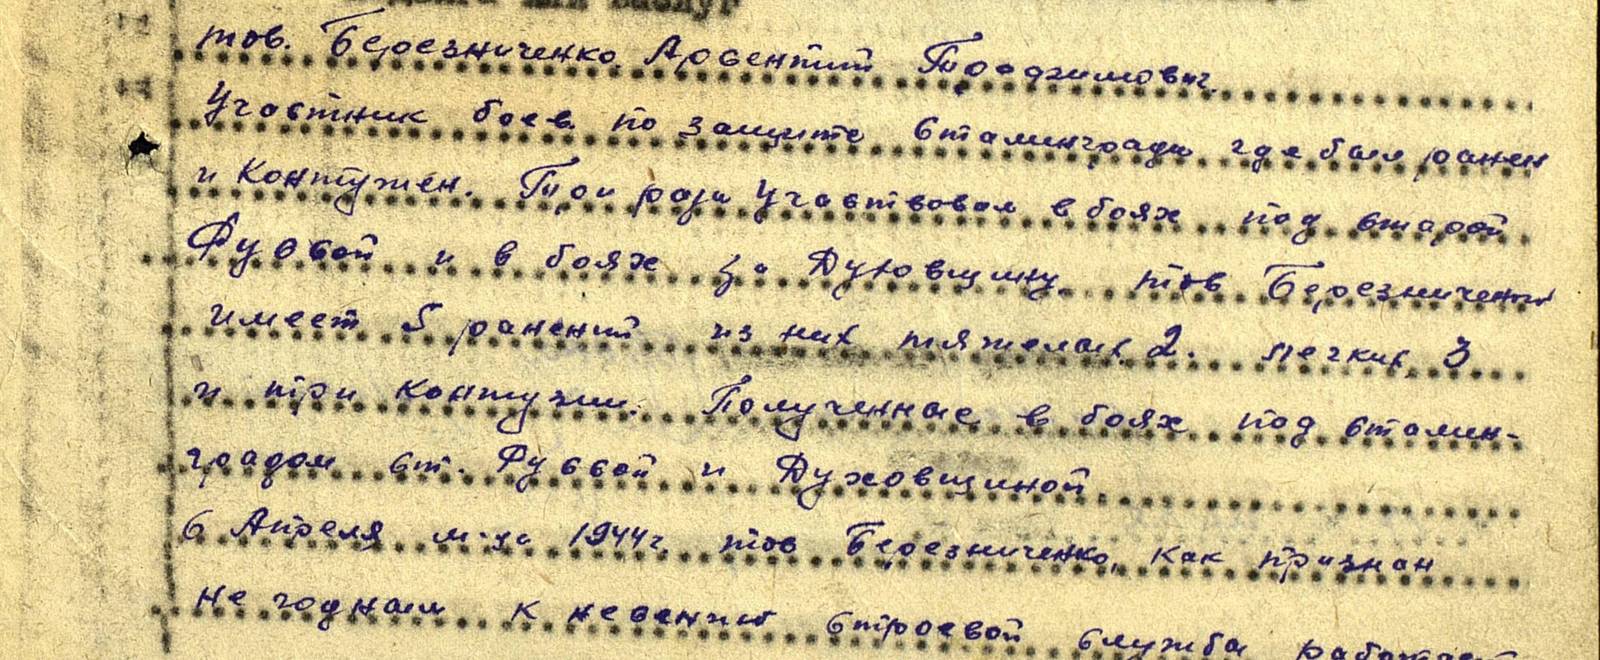 заслуг
тов. Березниченко Арсентий Трофимович.
Участник боев по защите Сталинграда где был ранен
и Контужен. Три раза Участвовал в боях под старой
Руссой и в боях за Духовщину. тов Березниченко
имеет 5 ранений из них тяжелых 2. легких 3
и три контузии. Полученные в боях под Сталин-
градом ст. Руссой и Духовщиной.
С Апреля м-ца 1944г. тов Березниченко, как признан
не годным к несению строевой служба работает